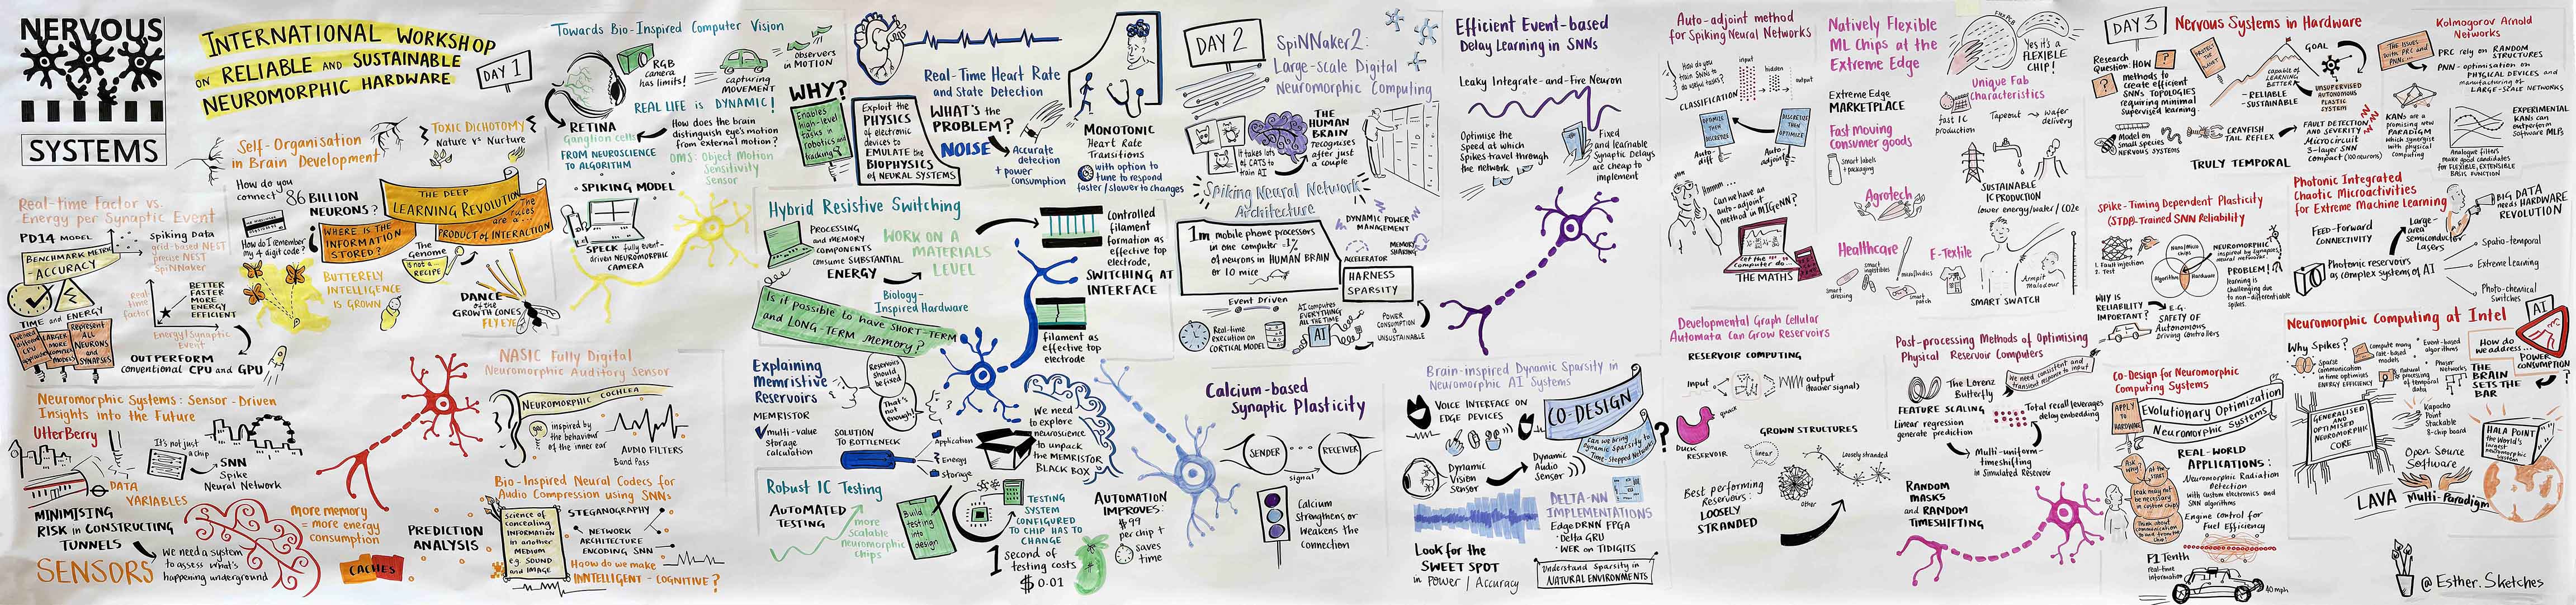 NERVOUS
SYSTEMS
INTERNATIONAL WORKSHOP
ON RELIABLE AND SUSTAINABLE
NEUROMORPHIC HARDWARE
DAY 1
Self-Organisation
in Brain Development
TOXIC DICHOTOMY
Nature vs Nurture
How do you
connect 86 BILLION
NEURONS?
THE DEEP
LEARNING REVOLUTION
The rules
are a...
PRODUCT of INTERACTION
How do I remember
my 4 digit code?
WHERE IS THE
INFORMATION
STORED?
The
Genome
is not a...
RECIPE
BUTTERFLY
INTELLIGENCE
IS GROWN
DANCE
of the
GROWTH CONES
FLY EYE
Real-time Factor vs.
Energy per Synaptic Event
PD14 MODEL
Spiking Data
grid-based NEST
precise NEST
SpiNNaker
BENCHMARK METRIC
ACCURACY
TIME and ENERGY
Real-
time
factor
BETTER
FASTER
MORE
ENERGY
EFFICIENT
Energy/Synaptic
Event
LARGER
MORE
COMPLEX
MODELS
Represent
ALL
NEURONS
and
SYNAPSES
OUTPERFORM
conventional CPU and GPU
Neuromorphic Systems: Sensor-Driven
Insights into the Future
UtterBerry
It's not just
a chip
SNN
Spike
Neural Network
DATA
VARIABLES
MINIMISING
RISK in CONSTRUCTING
TUNNELS
SENSORS
We need a system
to assess what's
happening underground
more memory
= more energy
consumption
CACHES
PREDICTION
ANALYSIS
NASIC Fully Digital
Neuromorphic Auditory Sensor
NEUROMORPHIC COCHLEA
inspired by
the behaviour
of the inner ear
AUDIO FILTERS
Band Pass
Bio-Inspired Neural Codecs for
Audio Compression using SNNs
Science of
concealing
INFORMATION
in another
MEDIUM
e.g. SOUND
and IMAGE
STEGANOGRAPHY
NETWORK
ARCHITECTURE
ENCODING SNN
How do we make
INTELLIGENT - COGNITIVE?
Towards Bio-Inspired Computer Vision
RGB
camera
has limits!
capturing
MOVEMENT
Observers
in MOTION
REAL LIFE is DYNAMIC!
RETINA
Ganglion cells
FROM NEUROSCIENCE
TO ALGORITHM
How does the brain
distinguish eye's motion
from external motion?
OMS: Object Motion
Sensitivity
Sensor
SPIKING MODEL
SPECK fully event-
driven NEUROMORPHIC
CAMERA
WHY?
Enables
high-level
tasks in
robotics and
tracking
Real-Time Heart Rate
and State Detection
Exploit the
PHYSICS
of electronic
devices to
EMULATE the
BIOPHYSICS
of NEURAL SYSTEMS
WHAT'S the
PROBLEM?
NOISE
Accurate
detection
+ power
consumption
MONOTONIC
Heart Rate
Transitions
with option to
tune to respond
faster/slower to changes
Hybrid Resistive Switching
PROCESSING
and MEMORY
COMPONENTS
consume SUBSTANTIAL
ENERGY
WORK ON A
MATERIALS
LEVEL
Controlled
filament
formation as
effective top
electrode.
SWITCHING AT
INTERFACE
Biology-
Inspired Hardware
Is it possible to have SHORT-TERM
and LONG-TERM Memory?
filament as
effective top
electrode
Explaining
Memristive
Reservoirs
Reservoirs
should
be fixed
That's
not
enough!
MEMRISTOR
multi-value
storage
calculation
SOLUTION
TO BOTTLENECK
Application
Energy
Storage
We need
to explore
neuroscience
to unpack
the MEMRISTOR
BLACK BOX
Robust IC Testing
AUTOMATED
TESTING
more
scalable
neuromorphic
chips
Build
testing
into
design
TESTING
SYSTEM
CONFIGURED
TO CHIP HAS TO
CHANGE
1 second of
testing costs
$0.01
AUTOMATION
IMPROVES:
$99
per chip +
saves
time
DAY 2
SpiNNaker2:
Large-scale Digital
Neuromorphic Computing
It takes lots
of CATS to
train AI
THE
HUMAN
BRAIN
recognises
after just
a couple
Spiking Neural Network
Architecture
1m mobile phone processors
in one computer ~1%
of neurons in HUMAN BRAIN
or 10 mice
DYNAMIC POWER
MANAGEMENT
MEMORY
SHARING
ACCELERATOR
HARNESS
SPARSITY
Event Driven
Real-time
execution on
CORTICAL MODEL
AI computes
EVERYTHING
ALL THE TIME
AI
POWER
CONSUMPTION
is
UNSUSTAINABLE
Calcium-based
Synaptic Plasticity
SENDER
RECEIVER
signal
Calcium
strengthens or
weakens the
connection
Efficient Event-based
Delay Learning in SNNs
Leaky Integrate-and-Fire Neuron
Optimise the
Speed at which
Spikes travel through
the network
Fixed
and learnable
Synaptic Delays
are cheap to
implement
Brain-inspired Dynamic Sparsity in
Neuromorphic AI Systems
VOICE INTERFACE ON
EDGE DEVICES
CO-DESIGN
Can we bring
Dynamic Sparsity to
Time-Stepped Networks
?
Dynamic
Vision
Sensor
Dynamic
Audio
Sensor
DELTA-NN
IMPLEMENTATIONS
EdgeDRNN FPGA
Delta GRU
WER on TIDIGITS
Look for the
SWEET SPOT
in Power / Accuracy
Understand Sparsity in
NATURAL ENVIRONMENTS
Auto-adjoint method
for Spiking Neural Networks
How do you
train SNNs to
do useful tasks?
input
hidden
output
CLASSIFICATION
OPTIMISE
THEN
DISCRETIZE
DISCRETIZE
THEN
OPTIMIZE
Auto
diff
Auto-
adjoint
Hmmm...
Can we have an
auto-adjoint
method in MLGeNN?
Let the
Computer do...
THE MATHS
Developmental Graph Cellular
Automata Can Grow Reservoirs
RESERVOIR COMPUTING
Input
output
(teacher signals)
quack
DUCK
RESERVOIR
GROWN STRUCTURES
linear
Loosely stranded
other
Best performing
Reservoirs:
LOOSELY
STRANDED
Natively Flexible
ML Chips at the
Extreme Edge
Yes it's a
FLEXIBLE
CHIP!
Extreme Edge
MARKETPLACE
Unique Fab
characteristics
fast IC
production
Tapeout → wafer
delivery
Fast moving
Consumer goods
Smart labels
+ packaging
Agrotech
SUSTAINABLE
IC PRODUCTION
lower energy/water/CO2e
Healthcare
smart
ingestibles
microfluidics
smart
dressing
smart
patch
E-Textile
Armpit
Malodour
SMART SWATCH
Post-processing Methods of Optimising
Physical Reservoir Computers
The Lorenz
Butterfly
We need consistent and
transient response to input
FEATURE SCALING
Linear regression
generate prediction
Total recall leverages
delay embedding
Multi-uniform-
timeshifting
in Simulated Reservoir
RANDOM
MASKS
and RANDOM
TIMESHIFTING
DAY 3
Nervous Systems in Hardware
Research
Question: HOW
?
methods to
create efficient
SNNs TOPOLOGIES
requiring minimal
supervised learning
PROTECT
THE
LIMIT
GOAL
capable of
LEARNING
BETTER
-RELIABLE
-SUSTAINABLE
UNSUPERVISED
AUTONOMOUS
PLASTIC
SYSTEM
Model on
small species
NERVOUS SYSTEMS
CRAYFISH
TAIL REFLEX
FAULT DETECTION
AND SEVERITY
MICROCIRCUIT
3-layer SNN
Compact (100 neurons)
TRULY TEMPORAL
Kolmogorov Arnold
Networks
THE ISSUES
WITH PRC AND
PNNs...
PRC rely on RANDOM
STRUCTURES
PNN - optimisation on
PHYSICAL DEVICES and
manufacturing of
LARGE-SCALE NETWORKS
KANs are a
promising new
PARADIGM
which synergises
with physical
computing
EXPERIMENTAL
KANs can
outperform
Software MLPs
Analogue filters
make good candidates
for FLEXIBLE, EXTENSIBLE
BASIS FUNCTION
Spike-Timing Dependent Plasticity
(STDP)-Trained SNN Reliability
1. Fault injection
2. Test
Nano/Micro
chips
Algorithms
Hardware
NEUROMORPHIC
inspired by synapses,
neural networks
PROBLEM!
learning is
challenging due
to non-differentiable
spikes.
WHY IS
RELIABILITY
IMPORTANT?
E.G.
SAFETY OF
Autonomous
driving controllers
Photonic Integrated
Chaotic Microactivities
for Extreme Machine Learning
BIG DATA
needs HARDWARE
REVOLUTION
FEED-FORWARD
CONNECTIVITY
Large-
area
semiconductor
Lasers
Photonic reservoirs
as complex systems of AI
Spatio-temporal
Extreme Learning
Photo-chemical
Switches
Co-Design for Neuromorphic
Computing Systems
APPLY
TO
HARDWARE
Evolutionary Optimization
Neuromorphic Systems
Ask
why?
at the
START
Leak may not
be necessary
in custom chips
Think about
communication
to and from the
chip!
REAL-WORLD
APPLICATIONS:
Neuromorphic Radiation
Detection
with custom electronics and
SNN algorithms
Engine Control for
Fuel Efficiency
F1 Tenth
real-time
information
40 mph
Neuromorphic Computing at Intel
AI
Why Spikes?
Sparse
communication
in time optimises
ENERGY EFFICIENCY
Compute many
rate-based
models
Event-based
algorithms
Natural
processing
of temporal
data
Phasor
Networks
How do
we address...
POWER
CONSUMPTION
?
THE
BRAIN
SETS THE
BAR
GENERALISED
AND
OPTIMISED
NEUROMORPHIC
CORE
Kapoho
Point
Stackable
8-chip board
HALA POINT
the World's
largest
neuromorphic
system
Open Source
Software
LAVA Multi-Paradigm
@Esther.Sketches